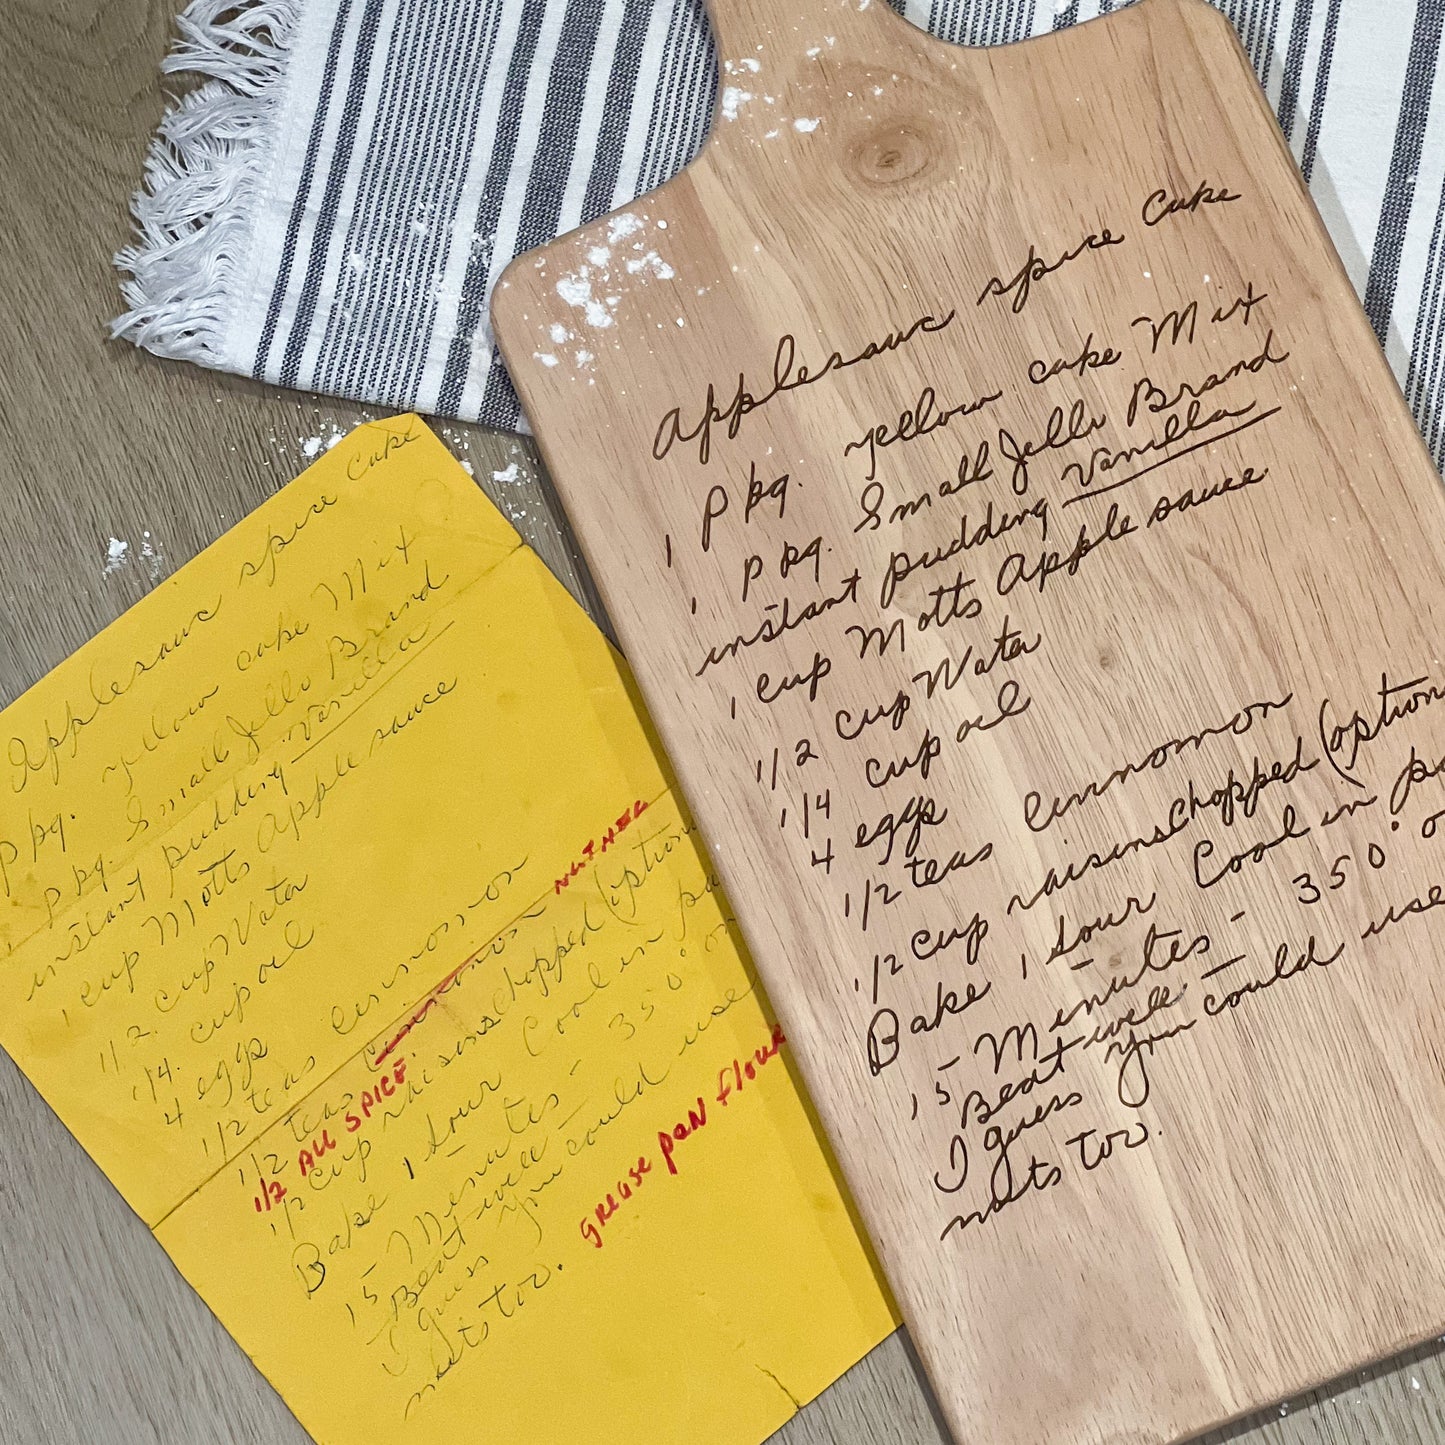 Applesauc spice Cake
P kg. yellow cake Mix
1 P kg. Small Jello Brand
instant pudding Vanilla
1 cup Motts Apple sauce
1/2 cup Water
1/4 cup oil
4 eggs
1/2 teas Cinnomon
1/2 teas NUTMEG
1/2 ALL SPICE
1/2 cup raisins chopped (option
Bake 1 hour Cool in pa
15 Minutes - 350° o
Beat well -
I guess you could use
nuts too. GREASE PAN FLOUR
Applesauc spice Cake
1 P kg. yellow cake Mix
1 P kg. Small Jello Brand
instant pudding Vanilla
1 cup Motts Apple sauce
1/2 cup Water
1/4 cup oil
4 eggs
1/2 teas Cinnomon
1/2 cup raisins chopped (option
Bake 1 hour Cool in pa
15 Minutes - 350° o
Beat well -
I guess you could use
nuts too.